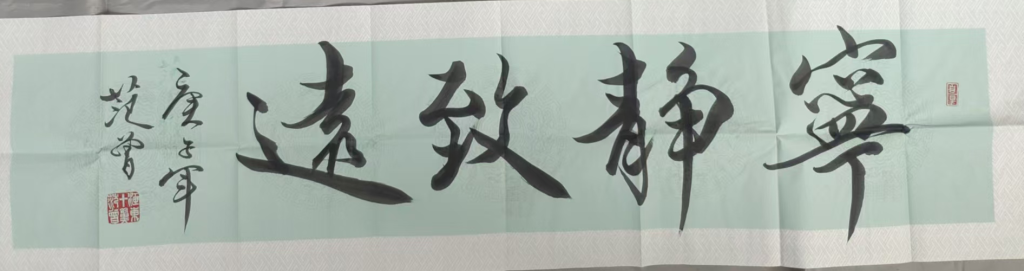 寧静致遠
庚子年
范曾